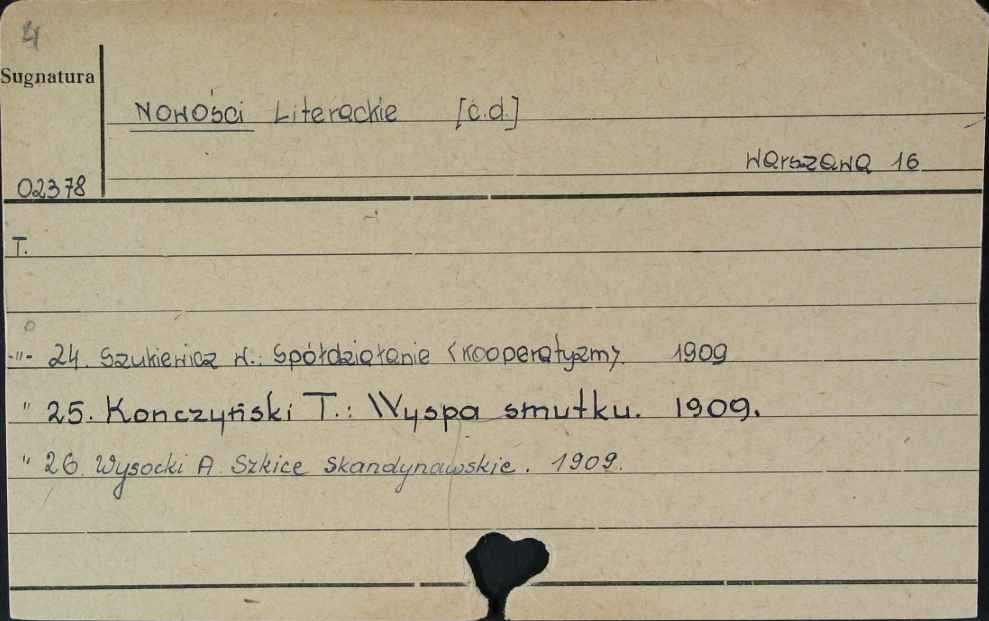 4
Sugnatura
Nowości Literackie [c.d.]
Warszawa 16
02378
T.
-"- 24. Szukiewicz W.: Spółdziałanie <kooperatyzm>. 1909
" 25. Konczyński T.: Wyspa smutku. 1909.
" 26. Wysocki A. Szkice Skandynawskie. 1909.